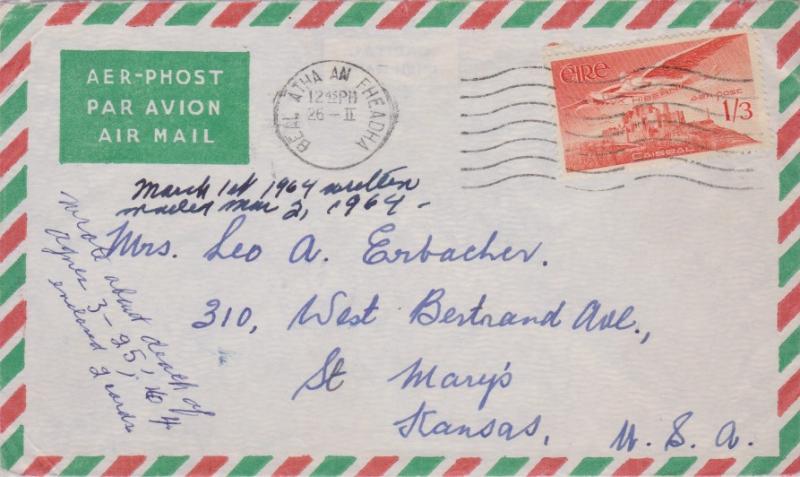 AER-PHOST
PAR AVION
AIR MAIL
BEAL ATHA AN FHEADHA
12 45 PM
26 - II
EIRE
HIBERN
aer post
1/3
CAISEAL
March 1st 1964 written
mailed Mar 2, 1964 -
Mrs. Leo A. Erbacher.
310, West Bertrand Ave.,
St Mary's
Kansas, U. S. A.
Wrote about death of
Agnes 3-25, 64
enclosed 2 cards